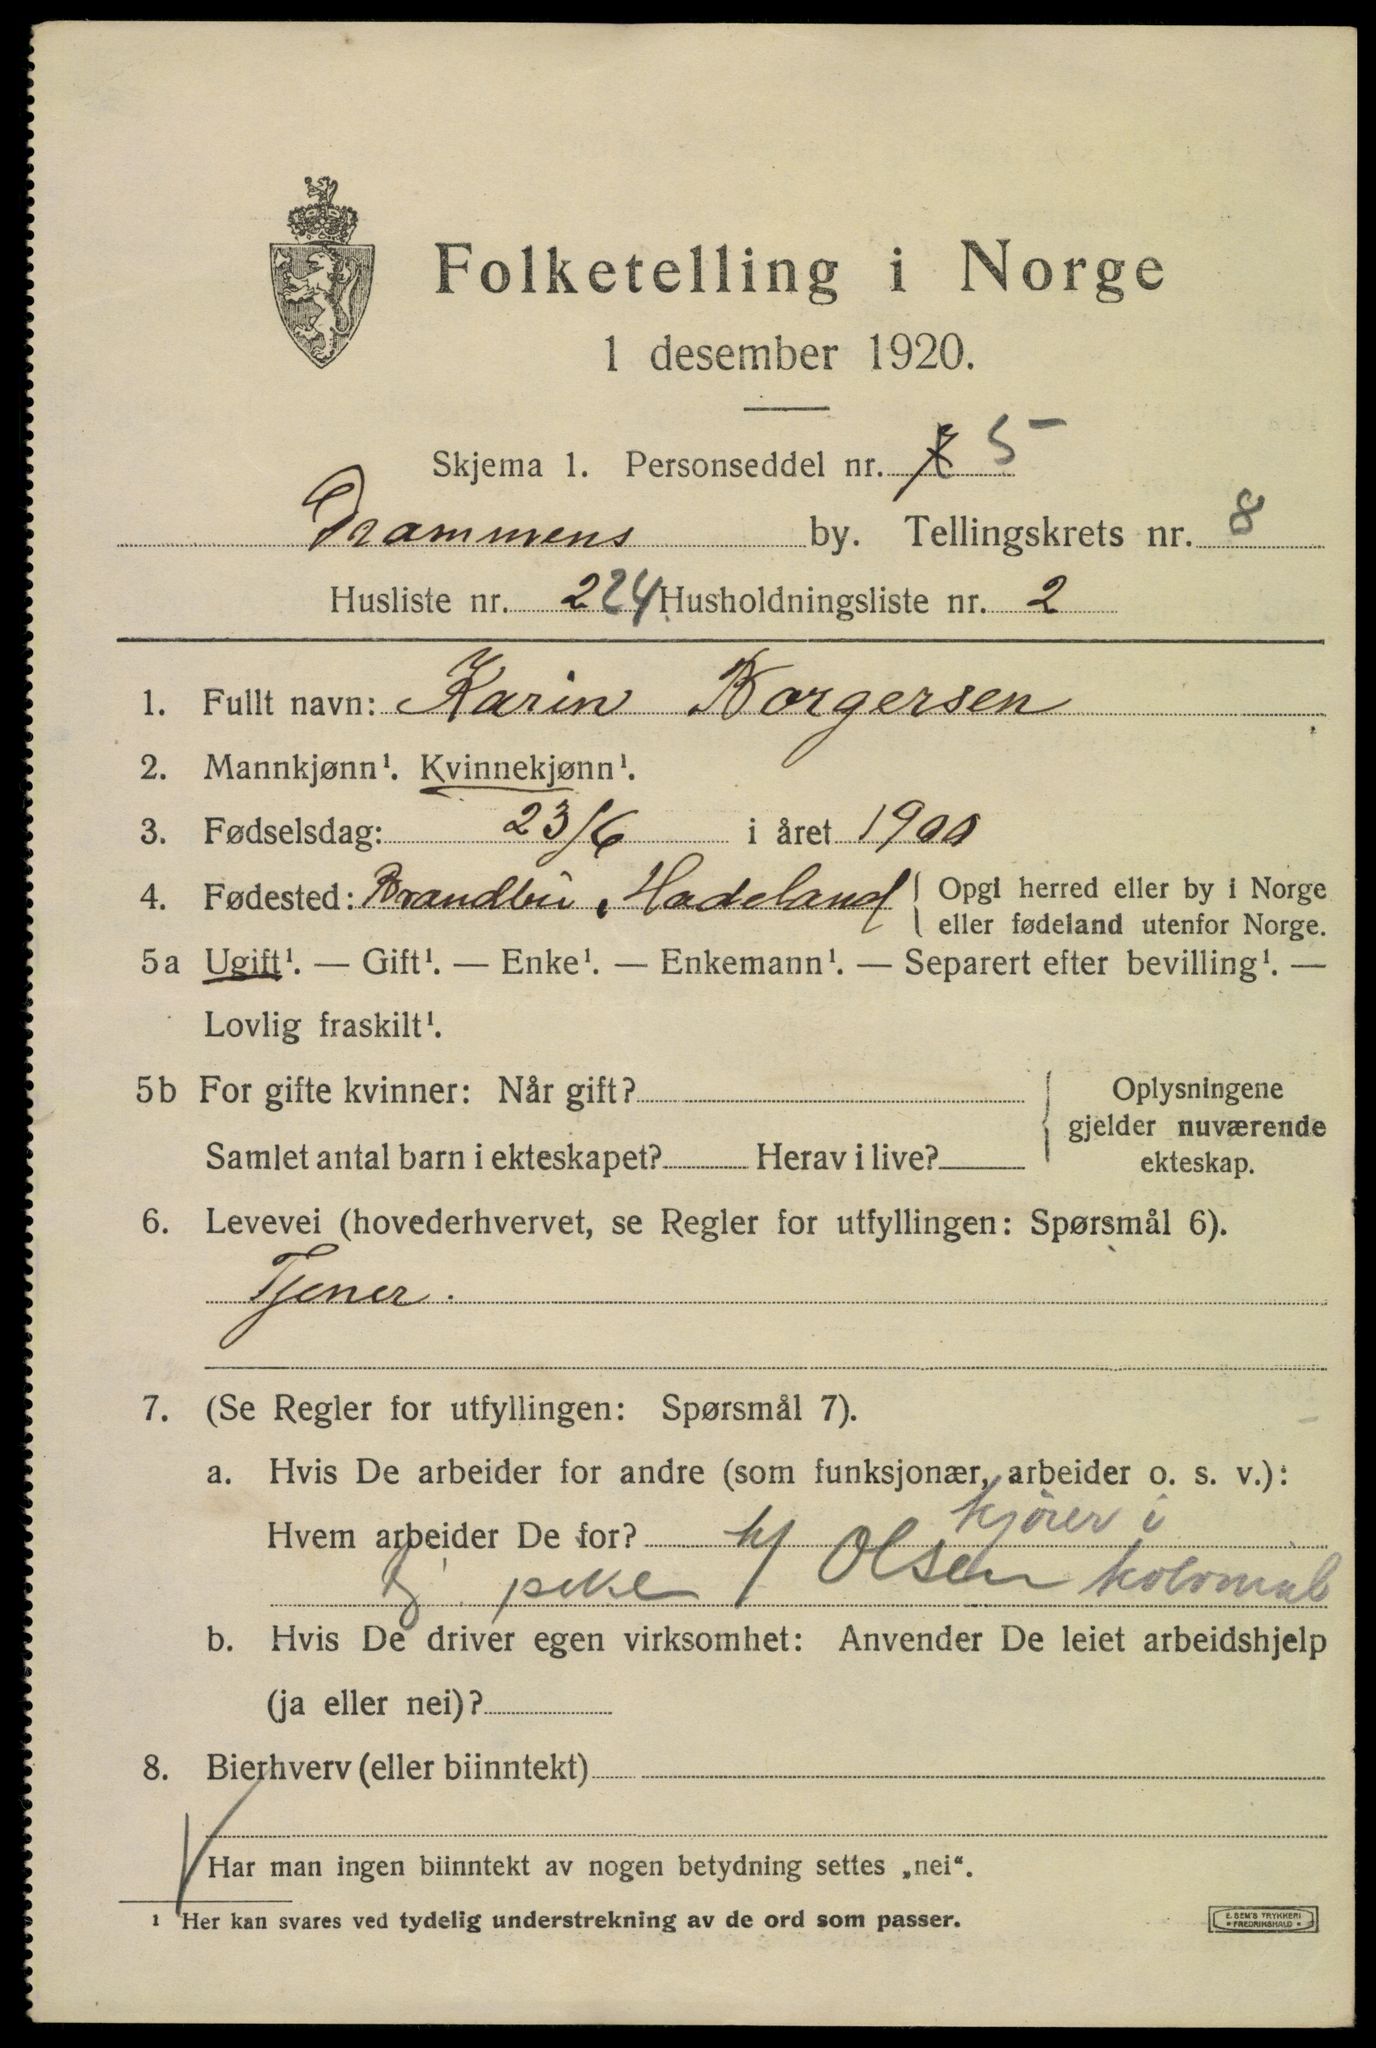 Folketelling i Norge
1 desember 1920.
Skjema 1. Personseddel nr. 5
Drammens by. Tellingskrets nr. 8
Husliste nr. 224 Husholdningsliste nr. 2
1. Fullt navn: Karin Borgersen
2. Mannkjønn¹. Kvinnekjønn¹.
3. Fødselsdag: 23/6 i året 1900
4. Fødested: Brandbu, Hadeland { Opgi herred eller by i Norge
eller fødeland utenfor Norge.
5a Ugift¹. — Gift¹. — Enke¹. — Enkemann¹. — Separert efter bevilling¹. —
Lovlig fraskilt¹.
5b For gifte kvinner: Når gift?
Samlet antal barn i ekteskapet? Herav i live?
{ Oplysningene
gjelder nuværende
ekteskap.
6. Levevei (hovederhvervet, se Regler for utfyllingen: Spørsmål 6).
Tjener.
7. (Se Regler for utfyllingen: Spørsmål 7).
a. Hvis De arbeider for andre (som funksjonær, arbeider o. s. v.):
kjører i
Hvem arbeider De for?
pike Olsen kolonial
b. Hvis De driver egen virksomhet: Anvender De leiet arbeidshjelp
(ja eller nei)?
8. Bierhverv (eller biinntekt)
Har man ingen biinntekt av nogen betydning settes „nei“.
¹ Her kan svares ved tydelig understrekning av de ord som passer.
E. SEM'S TRYKKERI
FREDRIKSHALD